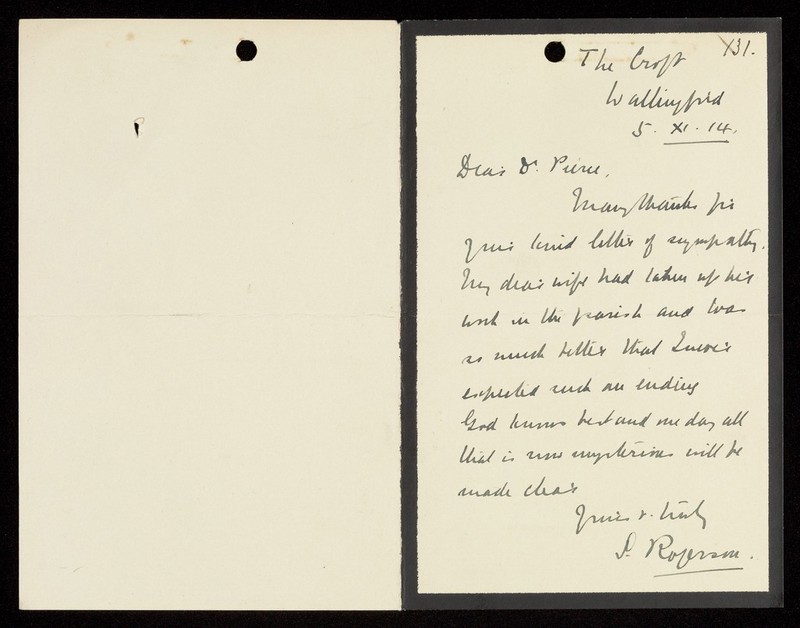 131.
The Croft
Wallingford
5. XI. 14.
Dear Dr. Pierce,
Many thanks for
your kind letter of sympathy.
My dear wife had taken up her
work in the parish and was
so much better that I never
expected such an ending
God knows best and one day all
that is now mysterious will be
made clear
Yours v. truly
S. Rogerson.